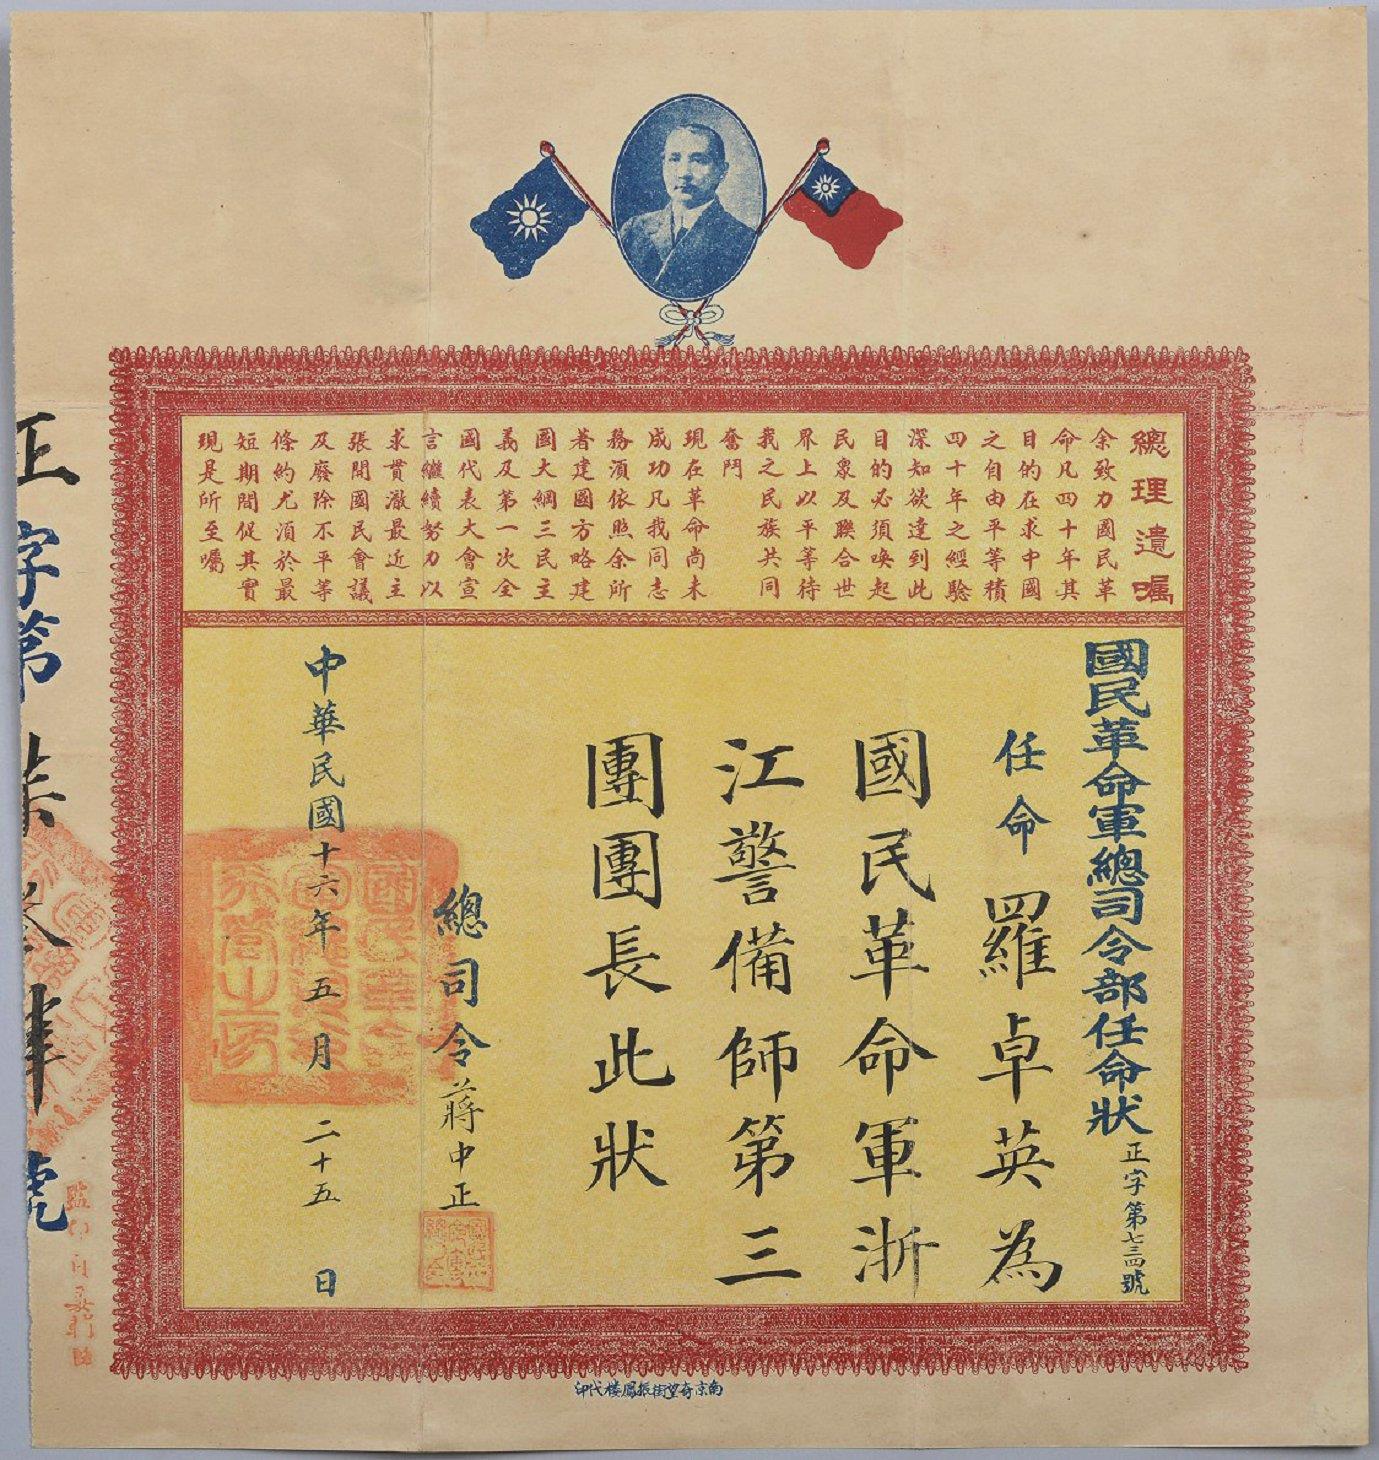 總理遺囑
余致力國民革
命凡四十年其
目的在求中國
之自由平等積
四十年之經驗
深知欲達到此
目的必須喚起
民衆及聯合世
界上以平等待
我之民族共同
奮鬥
現在革命尚未
成功凡我同志
務湏依照余所
著建國方略建
國大綱三民主
義及第一次全
國代表大會宣
言繼續努力以
求貫澈最近主
張開國民會議
及廢除不平等
條約尤湏於最
短期間促其實
現是所至囑
國民革命軍總司令部任命狀 正字第七三四號
任命 羅卓英為
國民革命軍浙
江警備師第三
團團長此狀
總司令 蔣中正
中華民國十六年五月二十五日
正字第柒叁肆號
南京奇望街振鳳樓代印